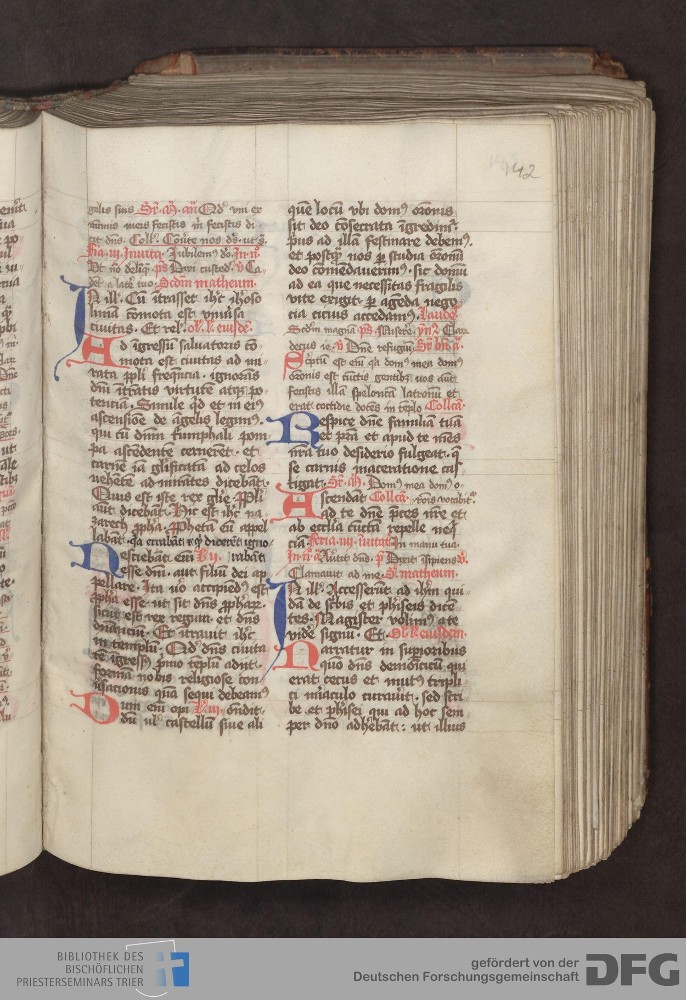 142
gelis suis Sr. Añ. añ Qd vni ex
minimis meis fecistis m̄ fecistis di
cit dn̄s. Coll. Cōu̇te nos ds. ut s̄.
Jubilem9 dō. In n̄.
Dixi custod. v̄ Ca
tuo. Scdm matheum.
N ill. Cū ītrasset ihc ihoso
limā cōmota est vniu̇sa
ciuitas. Et rel. ol. l. eiusdē.
Ad īgressū saluatoris cō
mota est ciuitas ad mi
rata ppli frequētia. ignorās
dm̄ ītratis virtutē atqȝ po
tencia. Simile qd et in ei9
ascensiōe de āgelis legim9.
qui cū dnm̄ tͥumphali pom
pa ascēdentē cernerēt. et
carnē iā glificatā ad celos
vehētē admirātes dicebāt.
Quis est iste rex glie. Ppli
aūt dicebāt. Hic est ihc na
zarech ppha. Pheta eū appel
labāt. qa errabāt
Nesciebāt eni
esse dnm̄. aut filiū dei ap
pellare. Ita uō accipiēd9 est
ppha esse. ut sit dn̄s pphar.
sicut est rex regum. et dn̄s
dnāciū. Et ītrauit ihc
in templū. Qd dn̄s ciuita
tē īgress9 pmo teplū adijt.
formā nobis religiose con
u̇sacionis quā sequi debeam9
Dum eni opi ōndit.
dū ul castellū siue ali
quē locū vbi dom9 orōnis
sit deo cōsecrata īgredim̄
pus ad illā festinare debem9.
et postq̄ nos p studia orōnū
deo comēdauerim9. sic demū
ad ea que necessitas fragilis
vite exigit p ageda nego
cia cicius accedam9. Laudes
Scdm magnā ps Misere. yn̄ z Clar.
decus ie. v̄ Dne refugiū.
Scptū est eni qa dom9 mea dom9
orōnis est cūctis gentibȝ uos aūt
fecistis illā speluncā latronū et
erat cottidie docēs in tēplo Collcā.
Respice dn̄e familiā tuā
et pͣsta et apud te mēs
nr̄a tuo desiderio fulgeat. q̄
se carnis maceratione cas
tigat. Dom9 mea dom9 o
Ascendāt Collcā. rōnis vocabit.
ad te dn̄e pces nr̄e et
ab ecclia cūctā repelle neq̄
ciā Feria iiij īuitat In manu tua.
In n̄ a Au̇tit dn̄s. p Dixit īsipiens
Clamaui ad me. S. matheum.
IN ill. Accesserūt ad ihm qui
dā de scbis et phiseis dicē
tes. Magister volum9 a te
videre signū. Et. Ol. l. eiusdem.
Narratur in supiōibus
quō dn̄s demōiacū qui
erat cecus et mut9 tripli
ci miraculo curauit. sed scri
be et phisei qui ad hoc sem
per dno adhebāt. ut illius
BIBLIOTHEK DES
BISCHÖFLICHEN
PRIESTERSEMINARS TRIER
gefördert von der
Deutschen Forschungsgemeinschaft
DFG